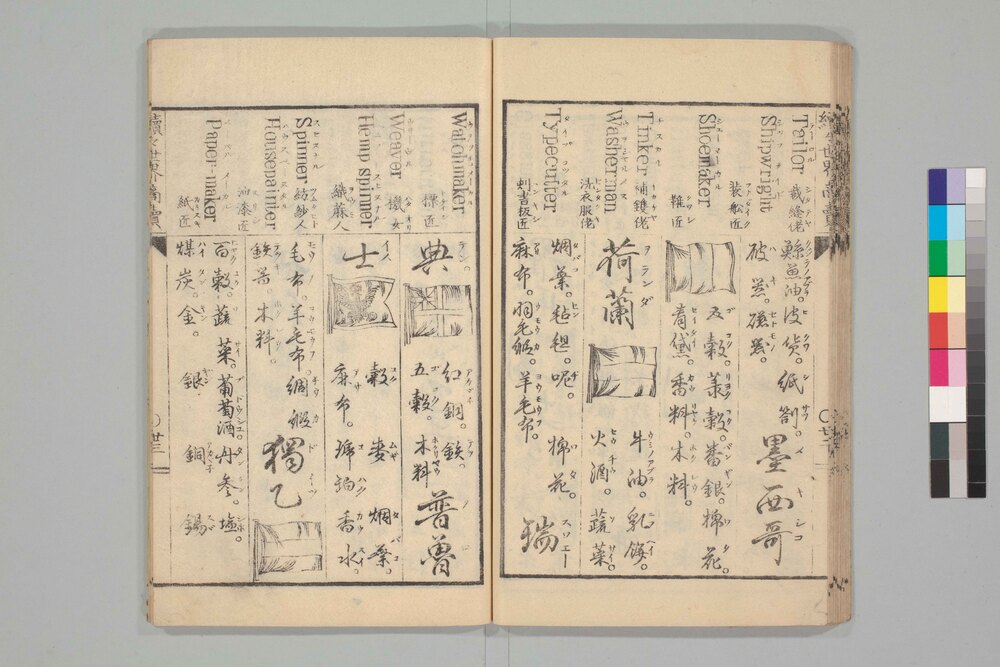 Tailor
裁縫佬
Shipwright
装舩匠
Shoemaker
鞋匠
Tinker
補鑊佬
Washerman
洗衣服佬
Typecutter
匠
鯨魚油。皮貨。紙劄。墨西哥
磁器。
五穀。菉穀。蕃銀。棉花。
青黛。香料。木料。
荷蘭
牛油。乳餅。
火酒。蔬菜。
烟葉。毡毯。呢。棉花。
麻布。羽毛緞。羊毛布。瑞
Watchmaker
匠
Weaver
機女
Hemp spinner
織蔴人
Spinner
紡紗人
Housepainter
油漆匠
Paper-maker
紙匠
典。
紅銅。鉄。
五穀。木料。
普魯
士
穀麥烟葉。
麻布。香水。
毛布。羊毛布。綢緞。
鉄器。木料。
獨乙
百穀。蔬菜。葡萄酒。丹参。塩。
煤炭。金。銀。銅。錫。